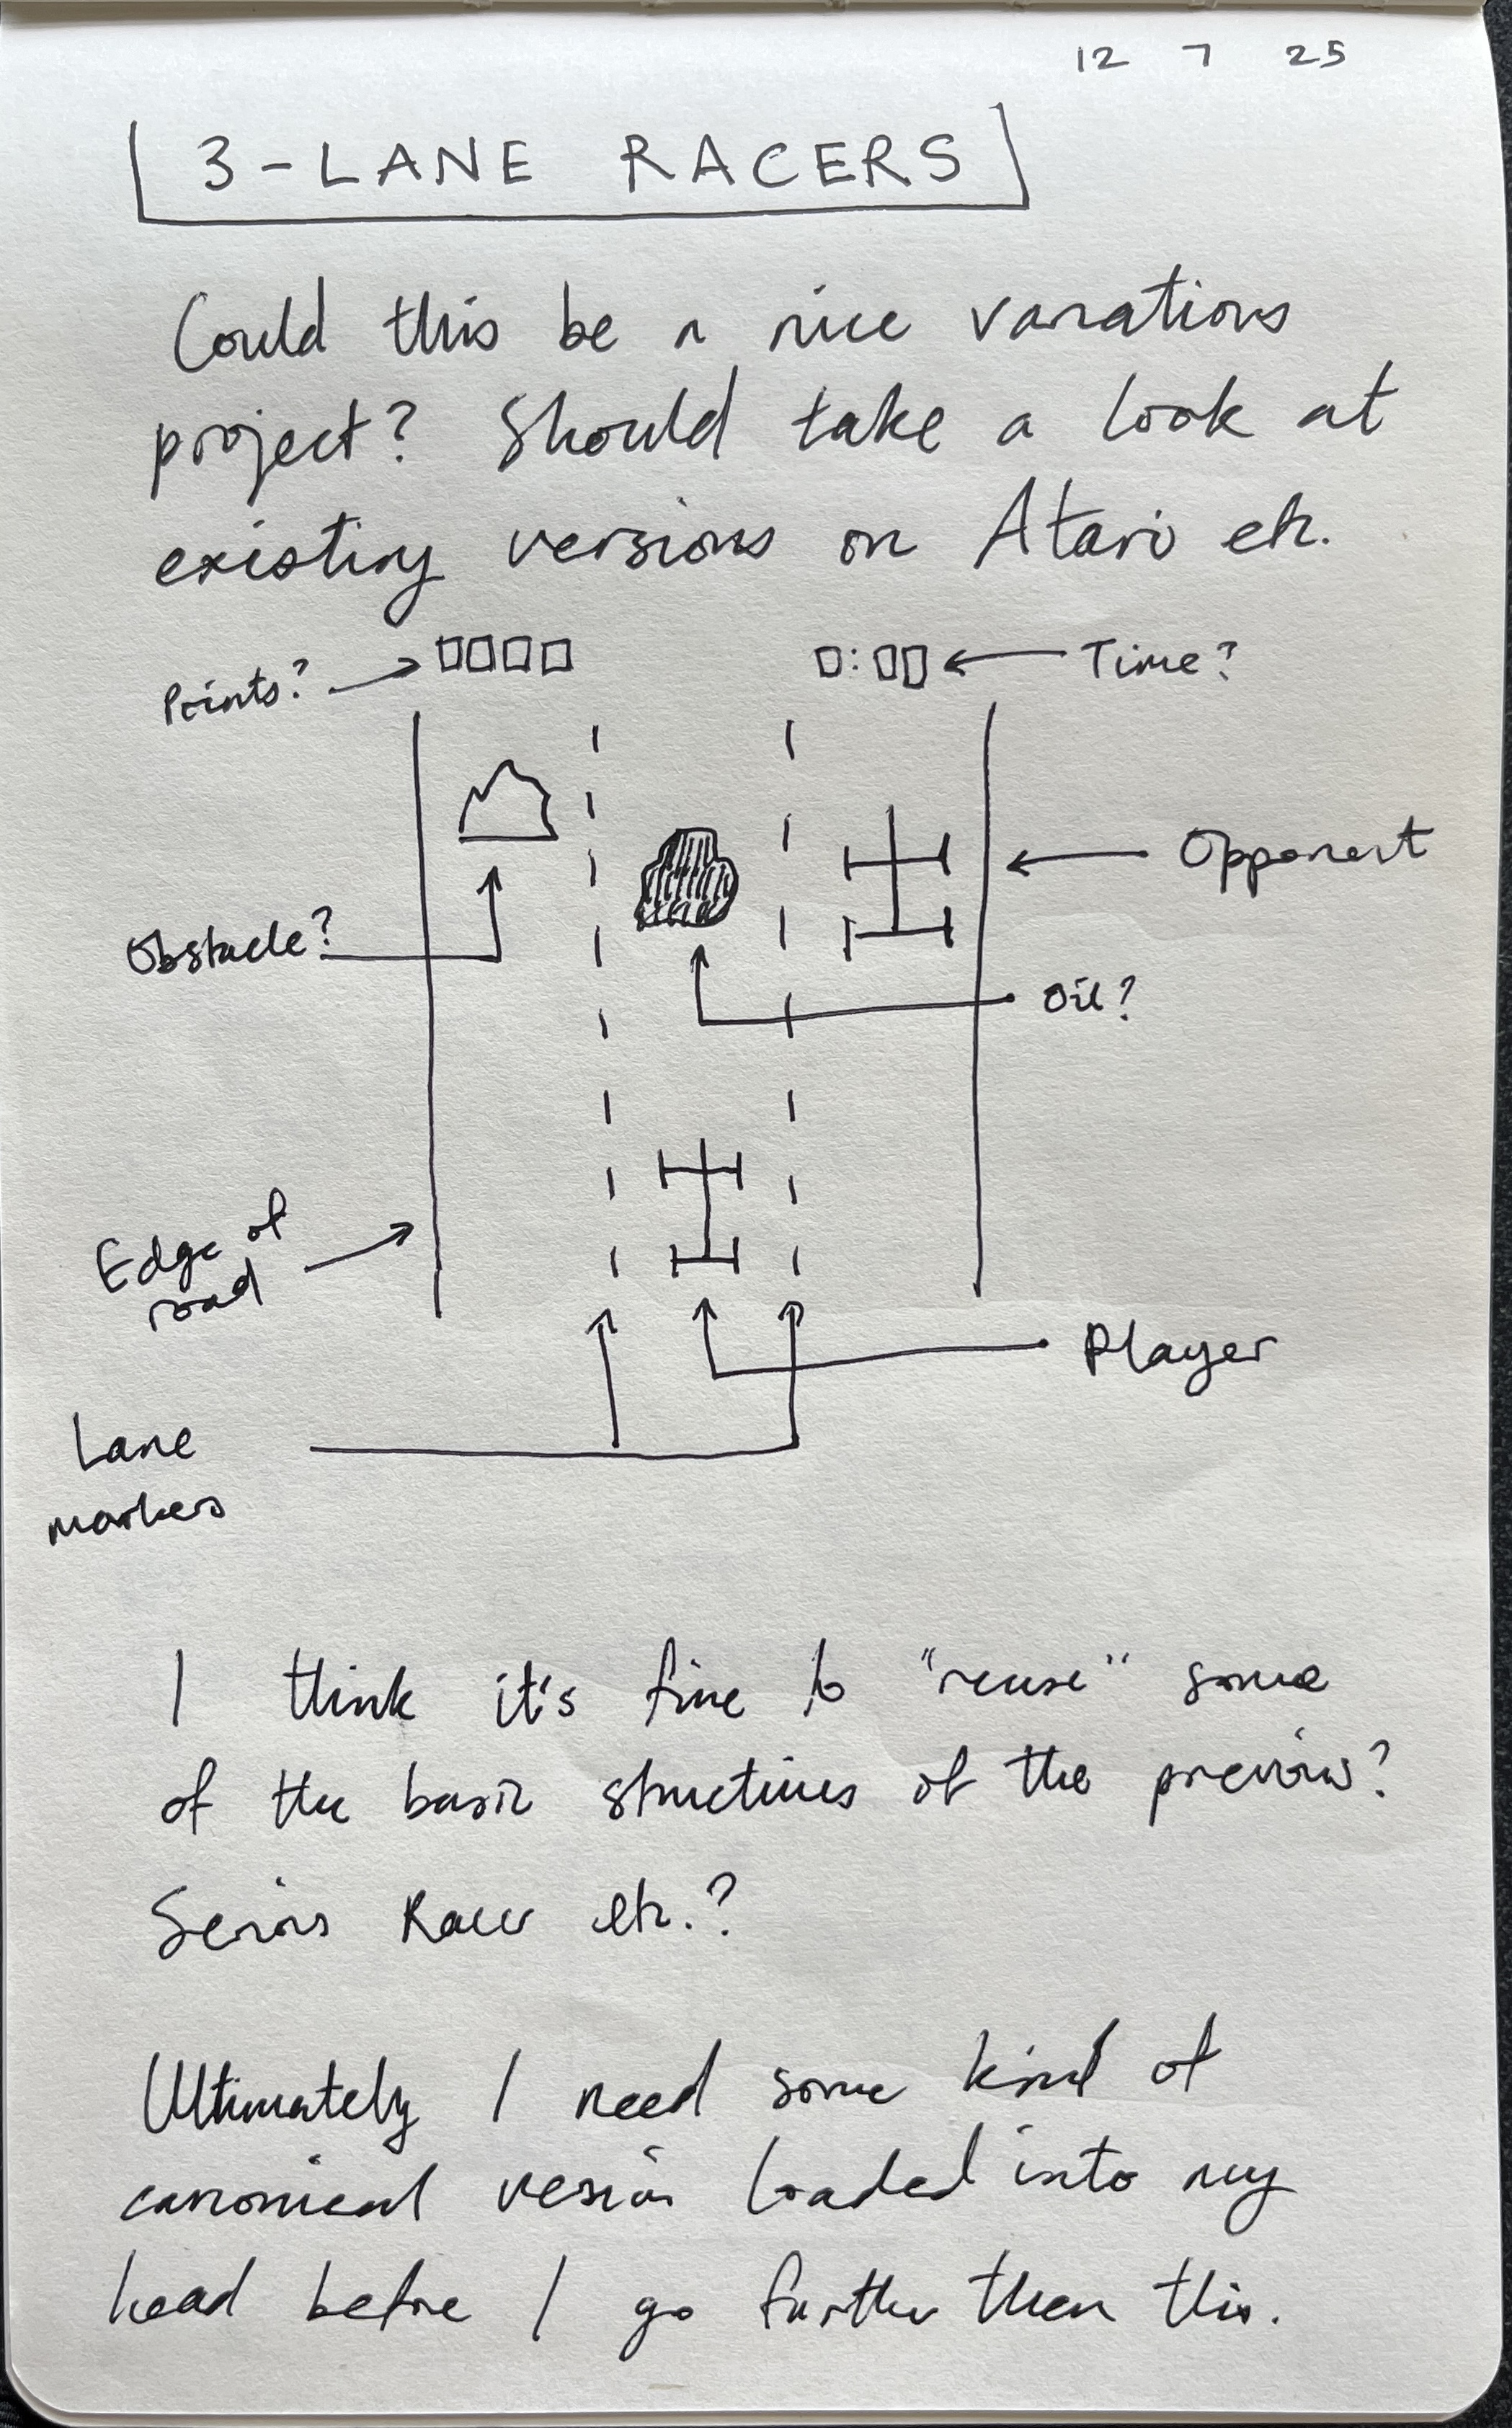 12 7 25
3-LANE RACERS
Could this be a nice variations
project? Should take a look at
existing versions on Atari etc.
Points?
0:00
Time?
Opponent
Obstacle?
Oil?
Edge of
road
Player
Lane
markers
I think it's fine to "reuse" some
of the basic structures of the previous?
Series Racer etc.?
Ultimately I need some kind of
canonical version loaded into my
head before I go further than this.